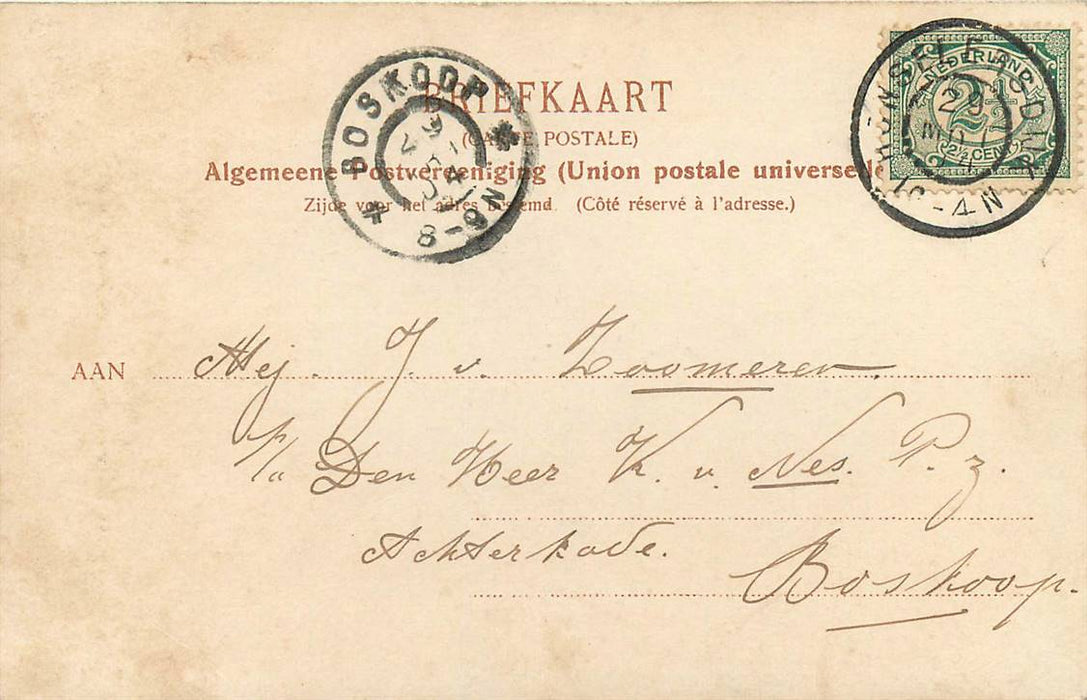 BRIEFKAART
(CARTE POSTALE)
Algemeene Postvereeniging (Union postale universelle)
Zijde voor het adres bestemd. (Côté réservé à l'adresse.)
BOSKOOP
8-9N
NEDERLAND
2½
2½ CENT
AAN Mej. J. v. Zoomeren.
p/a Den Heer K. v. Nes. P. z.
Achterkade.
Boskoop.